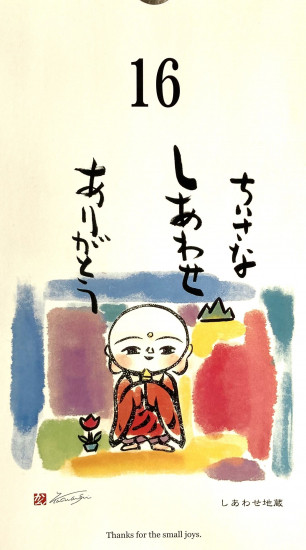 16
ちいさな
しあわせ
ありがとう
しあわせ地蔵
Thanks for the small joys.